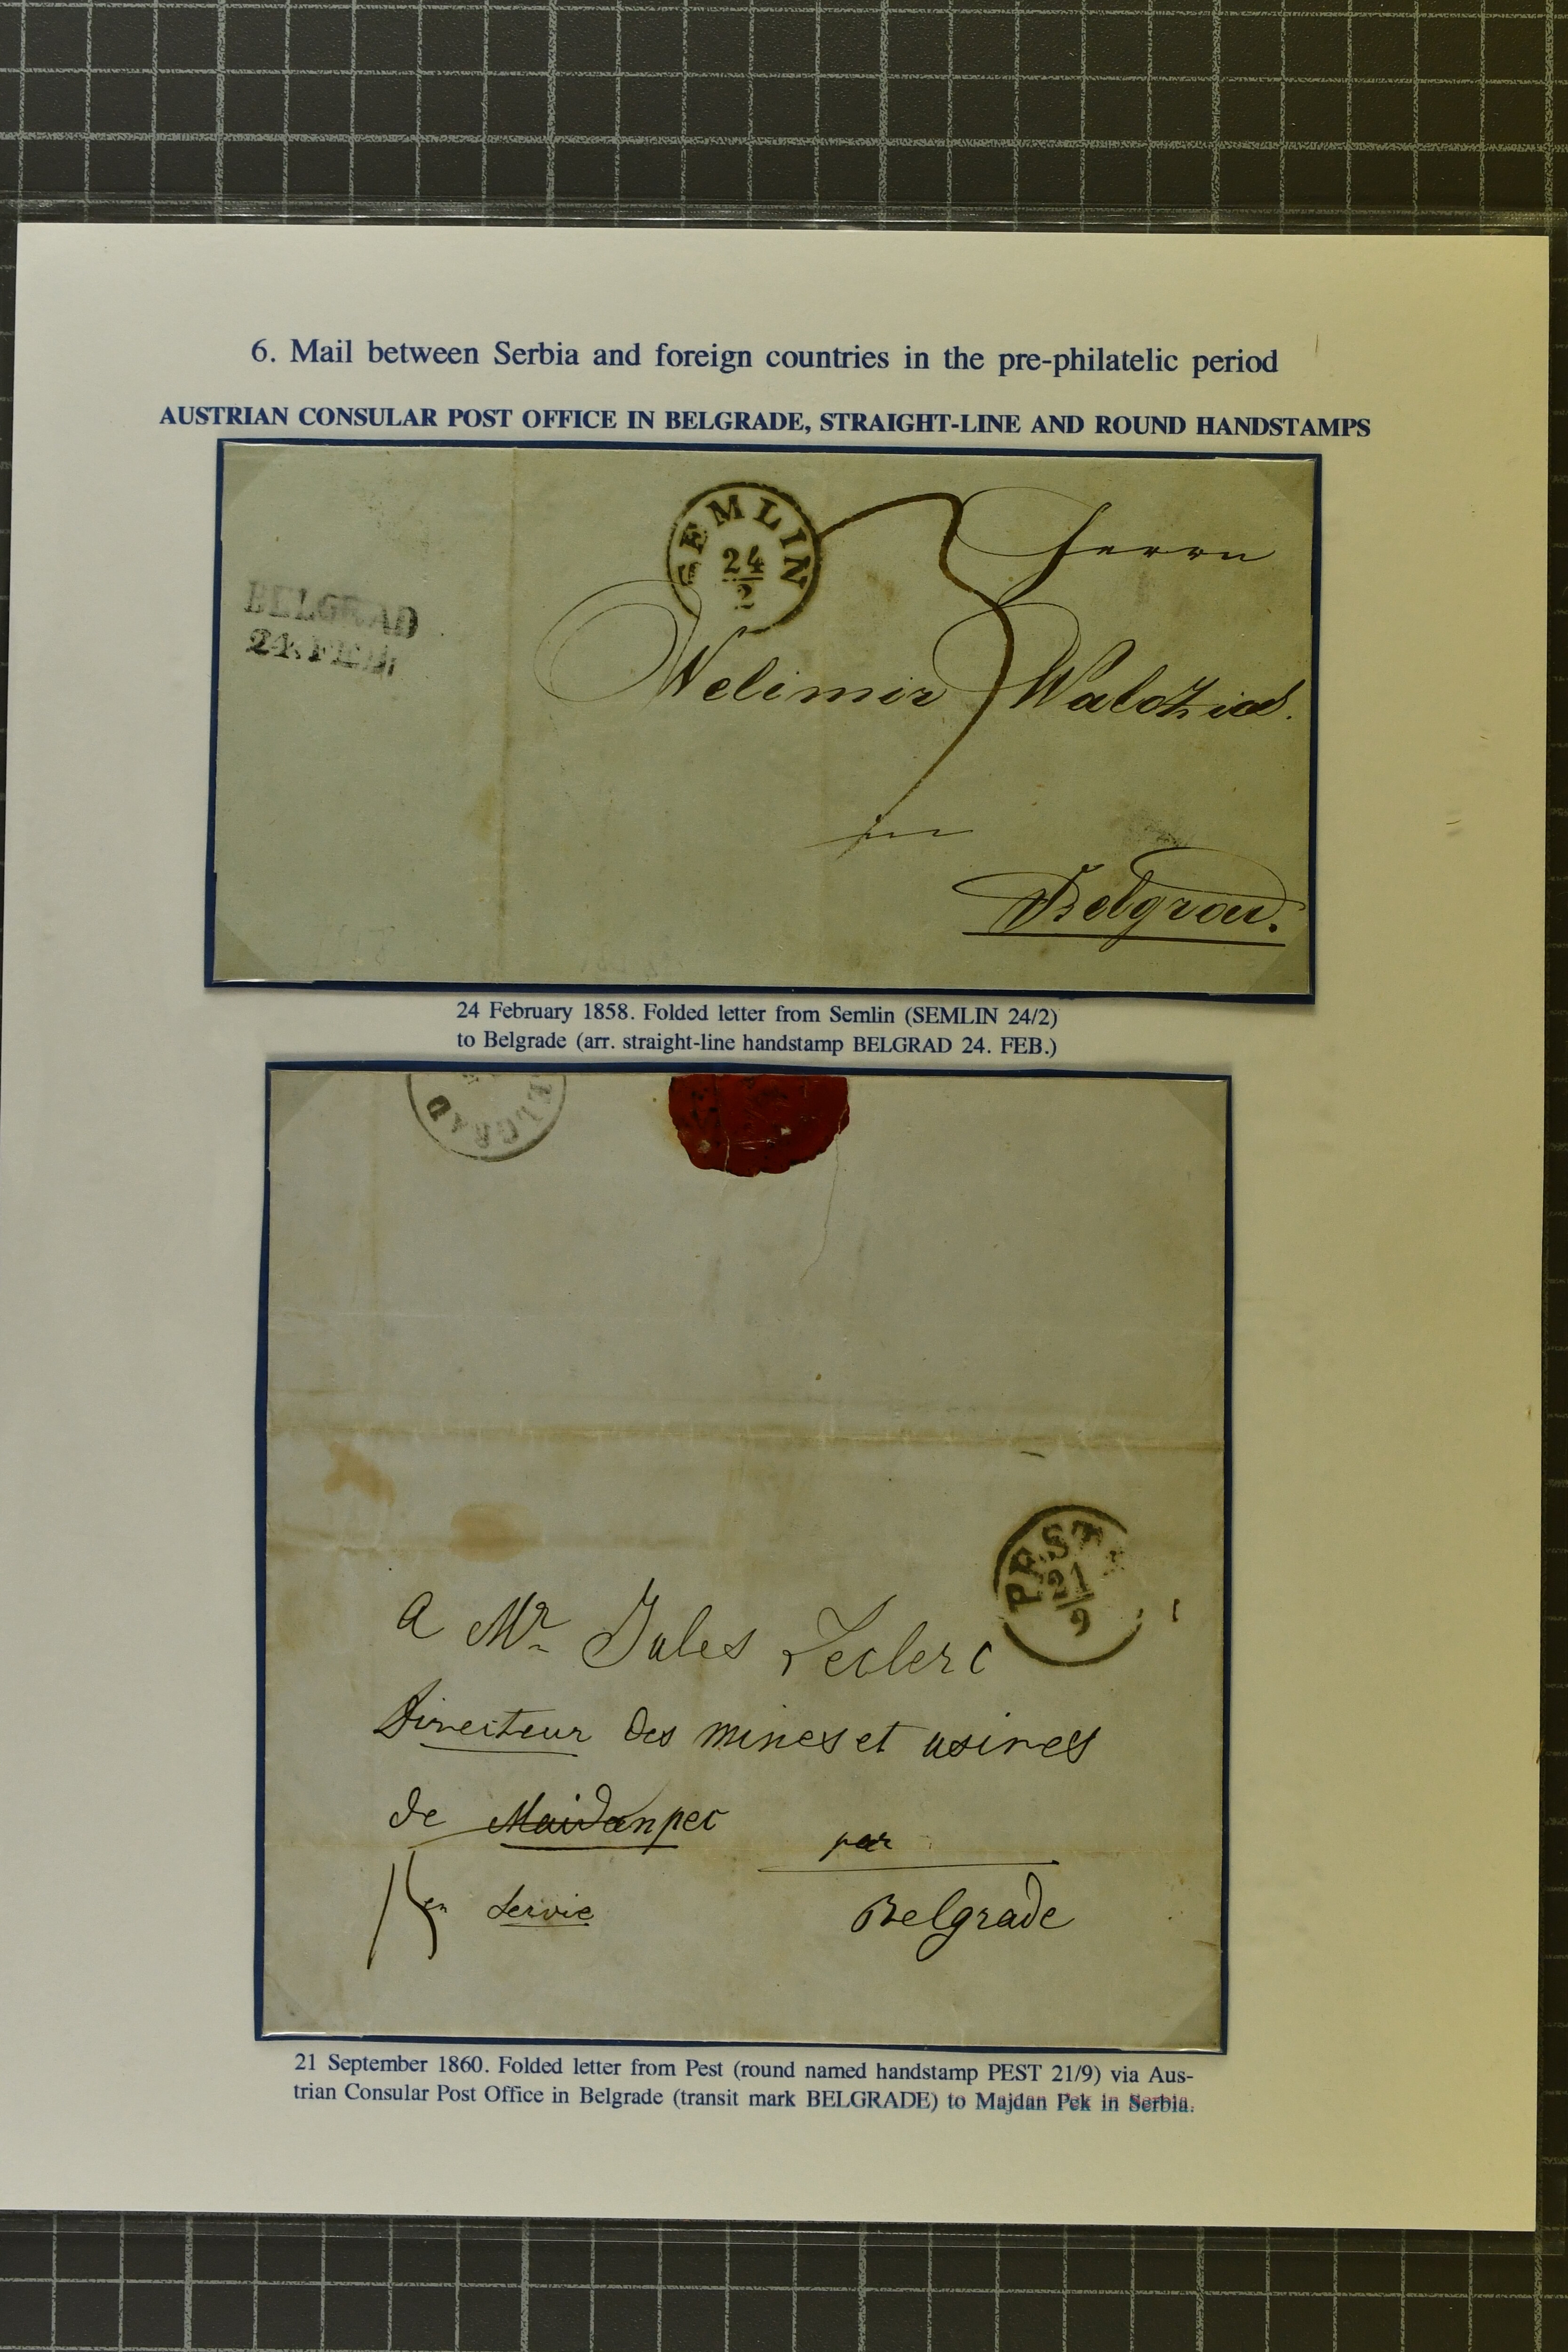 6. Mail between Serbia and foreign countries in the pre-philatelic period
AUSTRIAN CONSULAR POST OFFICE IN BELGRADE, STRAIGHT-LINE AND ROUND HANDSTAMPS
SEMLIN
24
2
BELGRAD
24. FEB.
Herrn
Welimir
in
Belgrad.
24 February 1858. Folded letter from Semlin (SEMLIN 24/2)
to Belgrade (arr. straight-line handstamp BELGRAD 24. FEB.)
ELGRAD
PEST
21
9
a Mr Jules Leclerc
Directeur des mines et usines
de Maidanpec
par
en Servie
Belgrade
21 September 1860. Folded letter from Pest (round named handstamp PEST 21/9) via Aus-
trian Consular Post Office in Belgrade (transit mark BELGRADE) to Majdan Pek in Serbia.